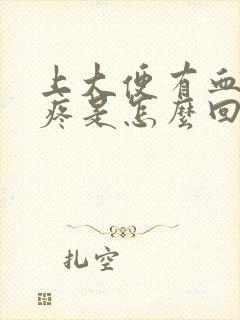 上大便有血
疼是怎麼回
扎空